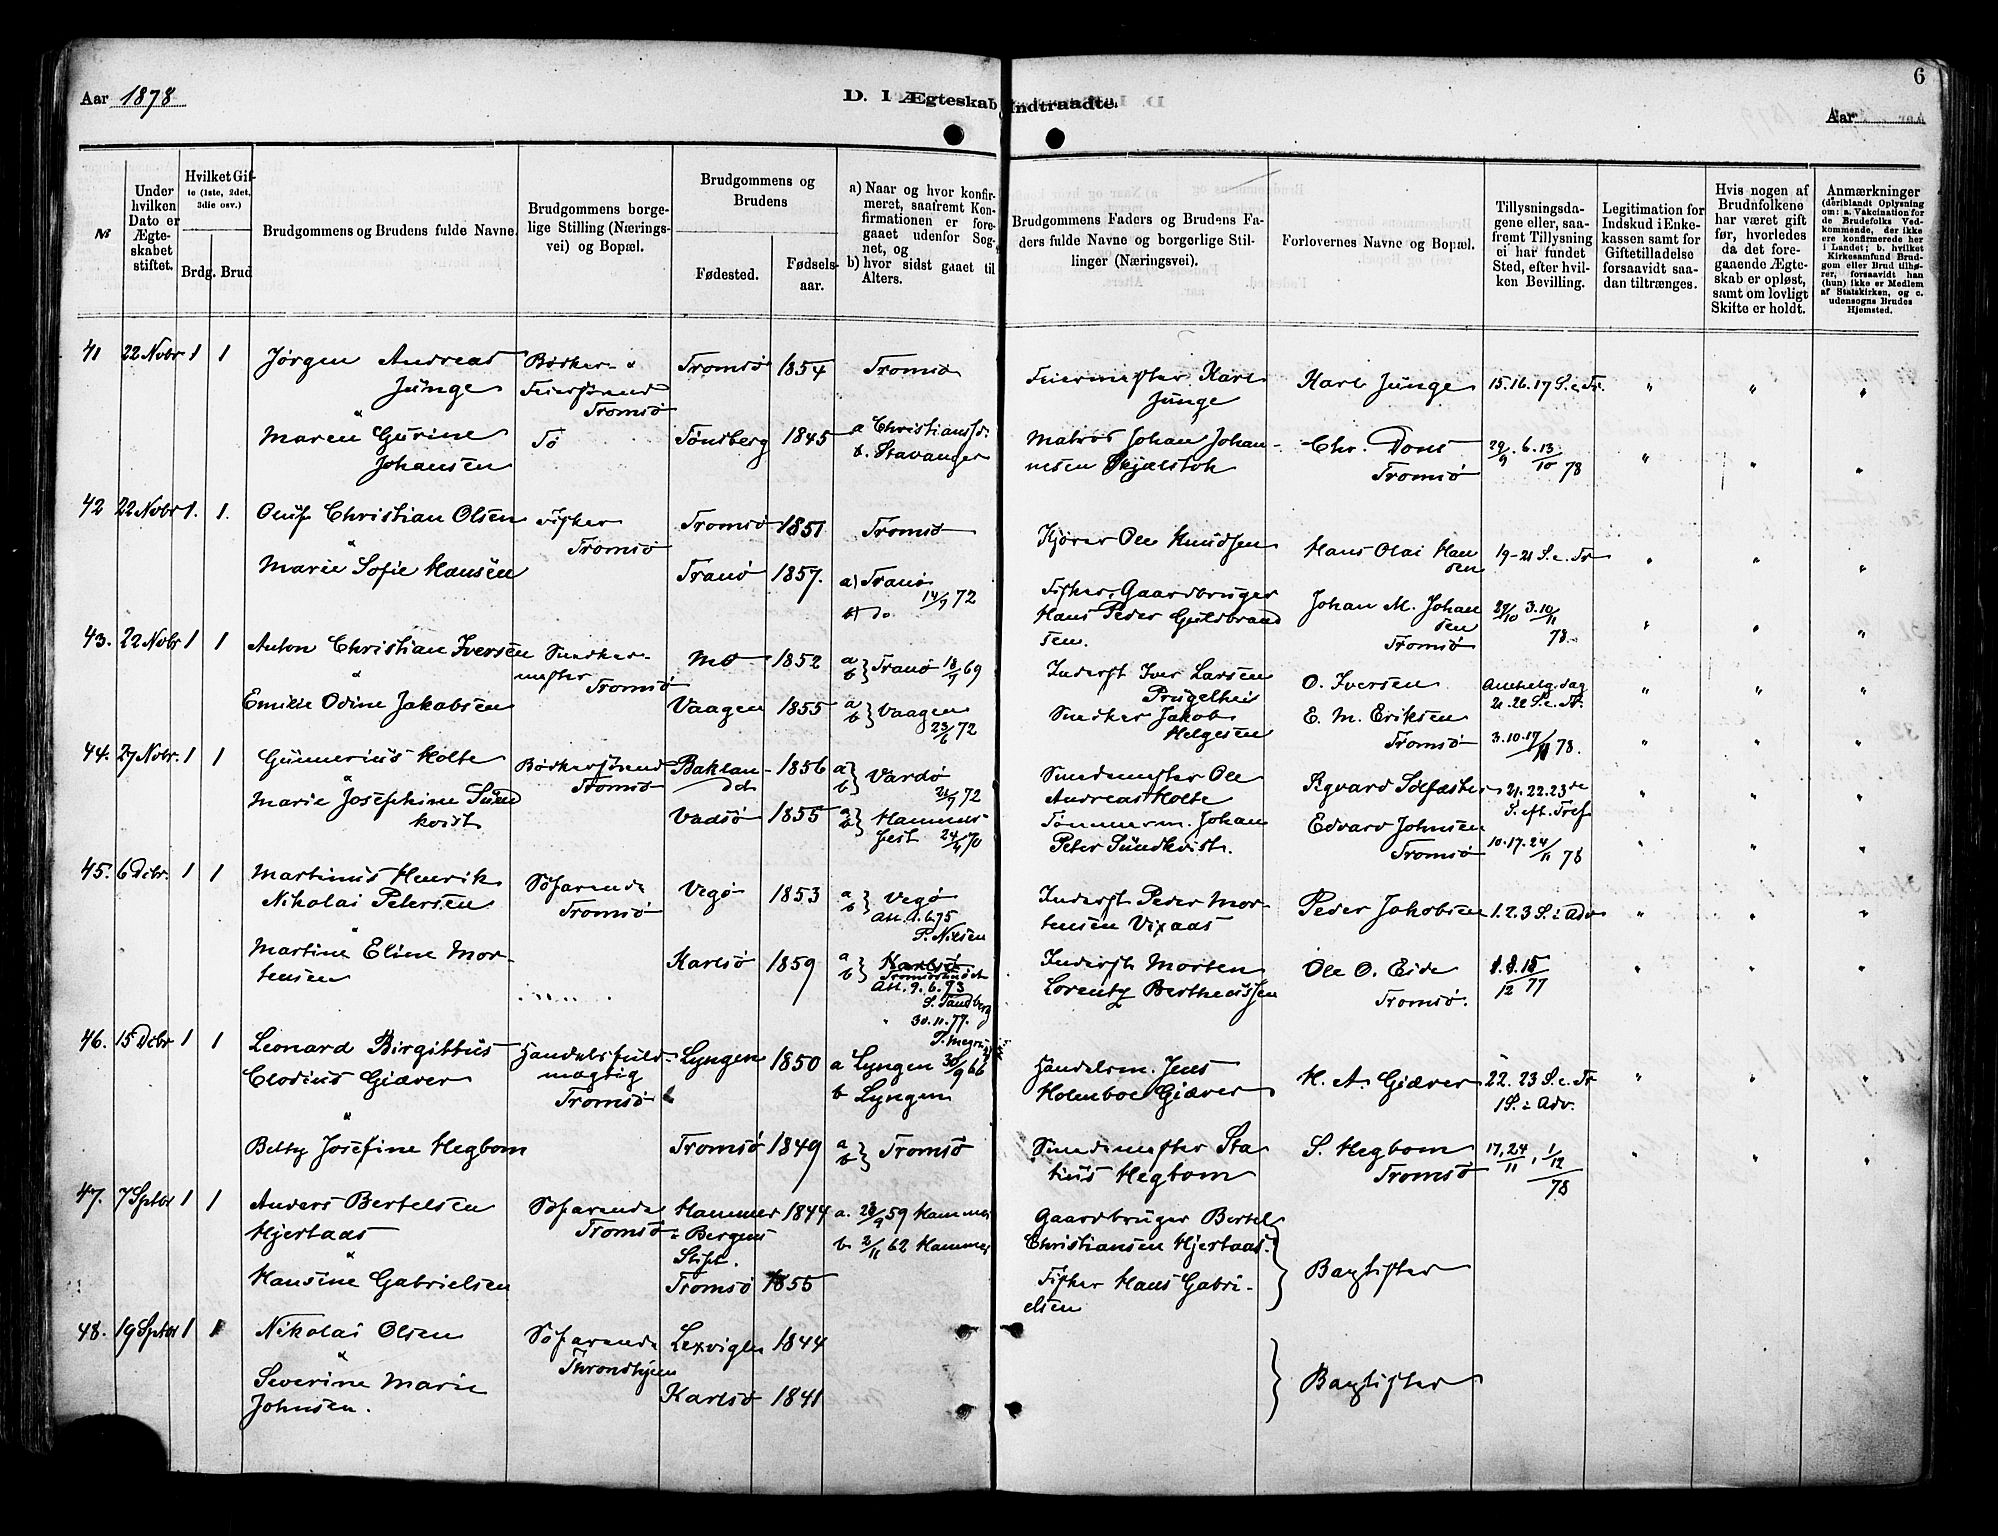 6
Aar 1878
D. I Ægteskab Indtraadte.
Aar
№
Under hvilken Dato er Ægteskabet stiftet.
Hvilket Gifte (1ste, 2det, 3die osv.)
Brdg. Brud
Brudgommens og Brudens fulde Navne.
Brudgommens borgelige Stilling (Næringsvei) og Bopæl.
Brudgommens og Brudens
Fødested.
Fødselsaar.
a) Naar og hvor konfirmeret, saafremt Konfirmationen er foregaaet udenfor Sognet, og
b) hvor sidst gaaet til Alters.
Brudgommens Faders og Brudens Faders fulde Navne og borgerlige Stillinger (Næringsvei).
Forlovernes Navne og Bopæl.
Tillysningsdagene eller, saafremt Tillysning ei har fundet Sted, efter hvilken Bevilling.
Legitimation for Indskud i Enkekassen samt for Giftetilladelse forsaavidt saadan tiltrænges.
Hvis nogen af Brudnfolkene har været gift før, hvorledes da det foregaaende Ægteskab er opløst, samt om lovligt Skifte er holdt.
Anmærkninger (deriblandt Oplysning om: a. Vakcination for de Brudefolks Vedkommende, der ikke ere konfirmerede her i Landet; b. hvilket Kirkesamfund Brudgom eller Brud tilhører, forsaavidt han (hun) ikke er Medlem af Statskirken, og c. udensogns Brudes Hjemsted.
41 22 Nobr 1 1 Jørgen Andreas Bødker- Tromsö 1854 Tromsö Feiermester Karl Karl Junge 15. 16. 17 S. e. Tr.
Junge Feiersvend Junge
Tromsö
Maren Gurine Do Tönsberg 1845 a Christianssd. Matros Johan Johan- Chr. Dons 29/9 6. 13/10 78
Johansen b. Stavanger nesen Tromsö
42 22 Nobr 1. 1. Oluf Christian Olsen Fisker Tromsö 1851 Tromsö Kjører Ole Knudsen Hans Olai Han 19-21 S. e. Tr
Tromsö sen
Marie Sofie Hansen Tranö 1857. a) Tranö Fisker, Gaardbruger Johan M. Johan 27/10 3. 10/11
14/7 72 Hans Peder Guldbrand sen 78.
b) do. sen. Tromsö
43. 22 Nobr 1 1 Anton Christian Iversen Snedker- Mo 1852 a b } Tranö 18/7 69 Inderst Iver Larsen O. Iversen Allehelg. dag
mester Tromsö 21. 22 S. e. Tr.
Emilie Odine Jakobsen Vaagen 1855 a b } Vaagen Snedker Jakob E. M. Eriksen 3. 10. 17/11 78.
23/6 72 Helgesen Tromsö
44. 27 Nobr. 1 1 Gunnerius Holte Bödkersvend Baklan- 1856 a b } Vardö Smedmester Ole 21. 22. 23de
Tromsö det 21/7 72 Andreas Holte S. eft. Tref.
Marie Josephine Sund Vadsö 1855 a b } Hammer- Tömmerm. Johan Edvard Johnsen 10. 17. 24/11 78
kvist fest 24/7 70 Peter Sundkvist. Tromsö
45. 6 Dcbr. 1 1 Martinus Henrik Söfarende Vegö 1853 a b } Vegö Inderst Peder Mor- Peder Jakobsen 1. 2. 3 S. i Adv
Nikolai Petersen Tromsö Att. 9. 6. 75 tensen Vixaas
P. Nilsen
Martine Eline Mor- Karlsö 1859 a b } Karlsö Inderst Morten Ole O. Eide 1. 8. 15/12 77
tensen Tromsösundet Lorentz Bertheussen Tromsö.
Att. 9. 6. 73
S. Sandberg
30. 11. 77.
46. 15 Dcbr 1 1 Leonard Birgittus Handelsfuld- Lyngen 1850 a Lyngen 30/9 66 Handelsm. Jens H. A. Giæver 22. 23 S. e. Tr
Clodius Giæver mægtig b Lyngen Holmboe Giæver 1 S. i Adv.
Tromsö
Betty Josefine Hegbom Tromsö 1849 a b } Tromsö Smedemester Sta S. Hegbom 17, 24/11, 1/12
tius Hegbom Tromsö 78
47. 7 Sptbr 1 1 Anders Bertelsen Söfarende Hammer 1844 a. 28/9 59 Hammer Gaardbruger Bertel
Hjertaas Tromsö i Bergens b 2/11 62 Hammer Christiansen Hjertaas.
Stift.
Hansine Gabrielsen Tromsö 1855 Fisker Hans Gabri- } Baptister
elsen
48. 19 Sptbr 1 1 Nikolai Olsen Söfarende Lexvigen 1844
Throndhjem } Baptister
Severine Marie Karlsö 1841
Johnsen.